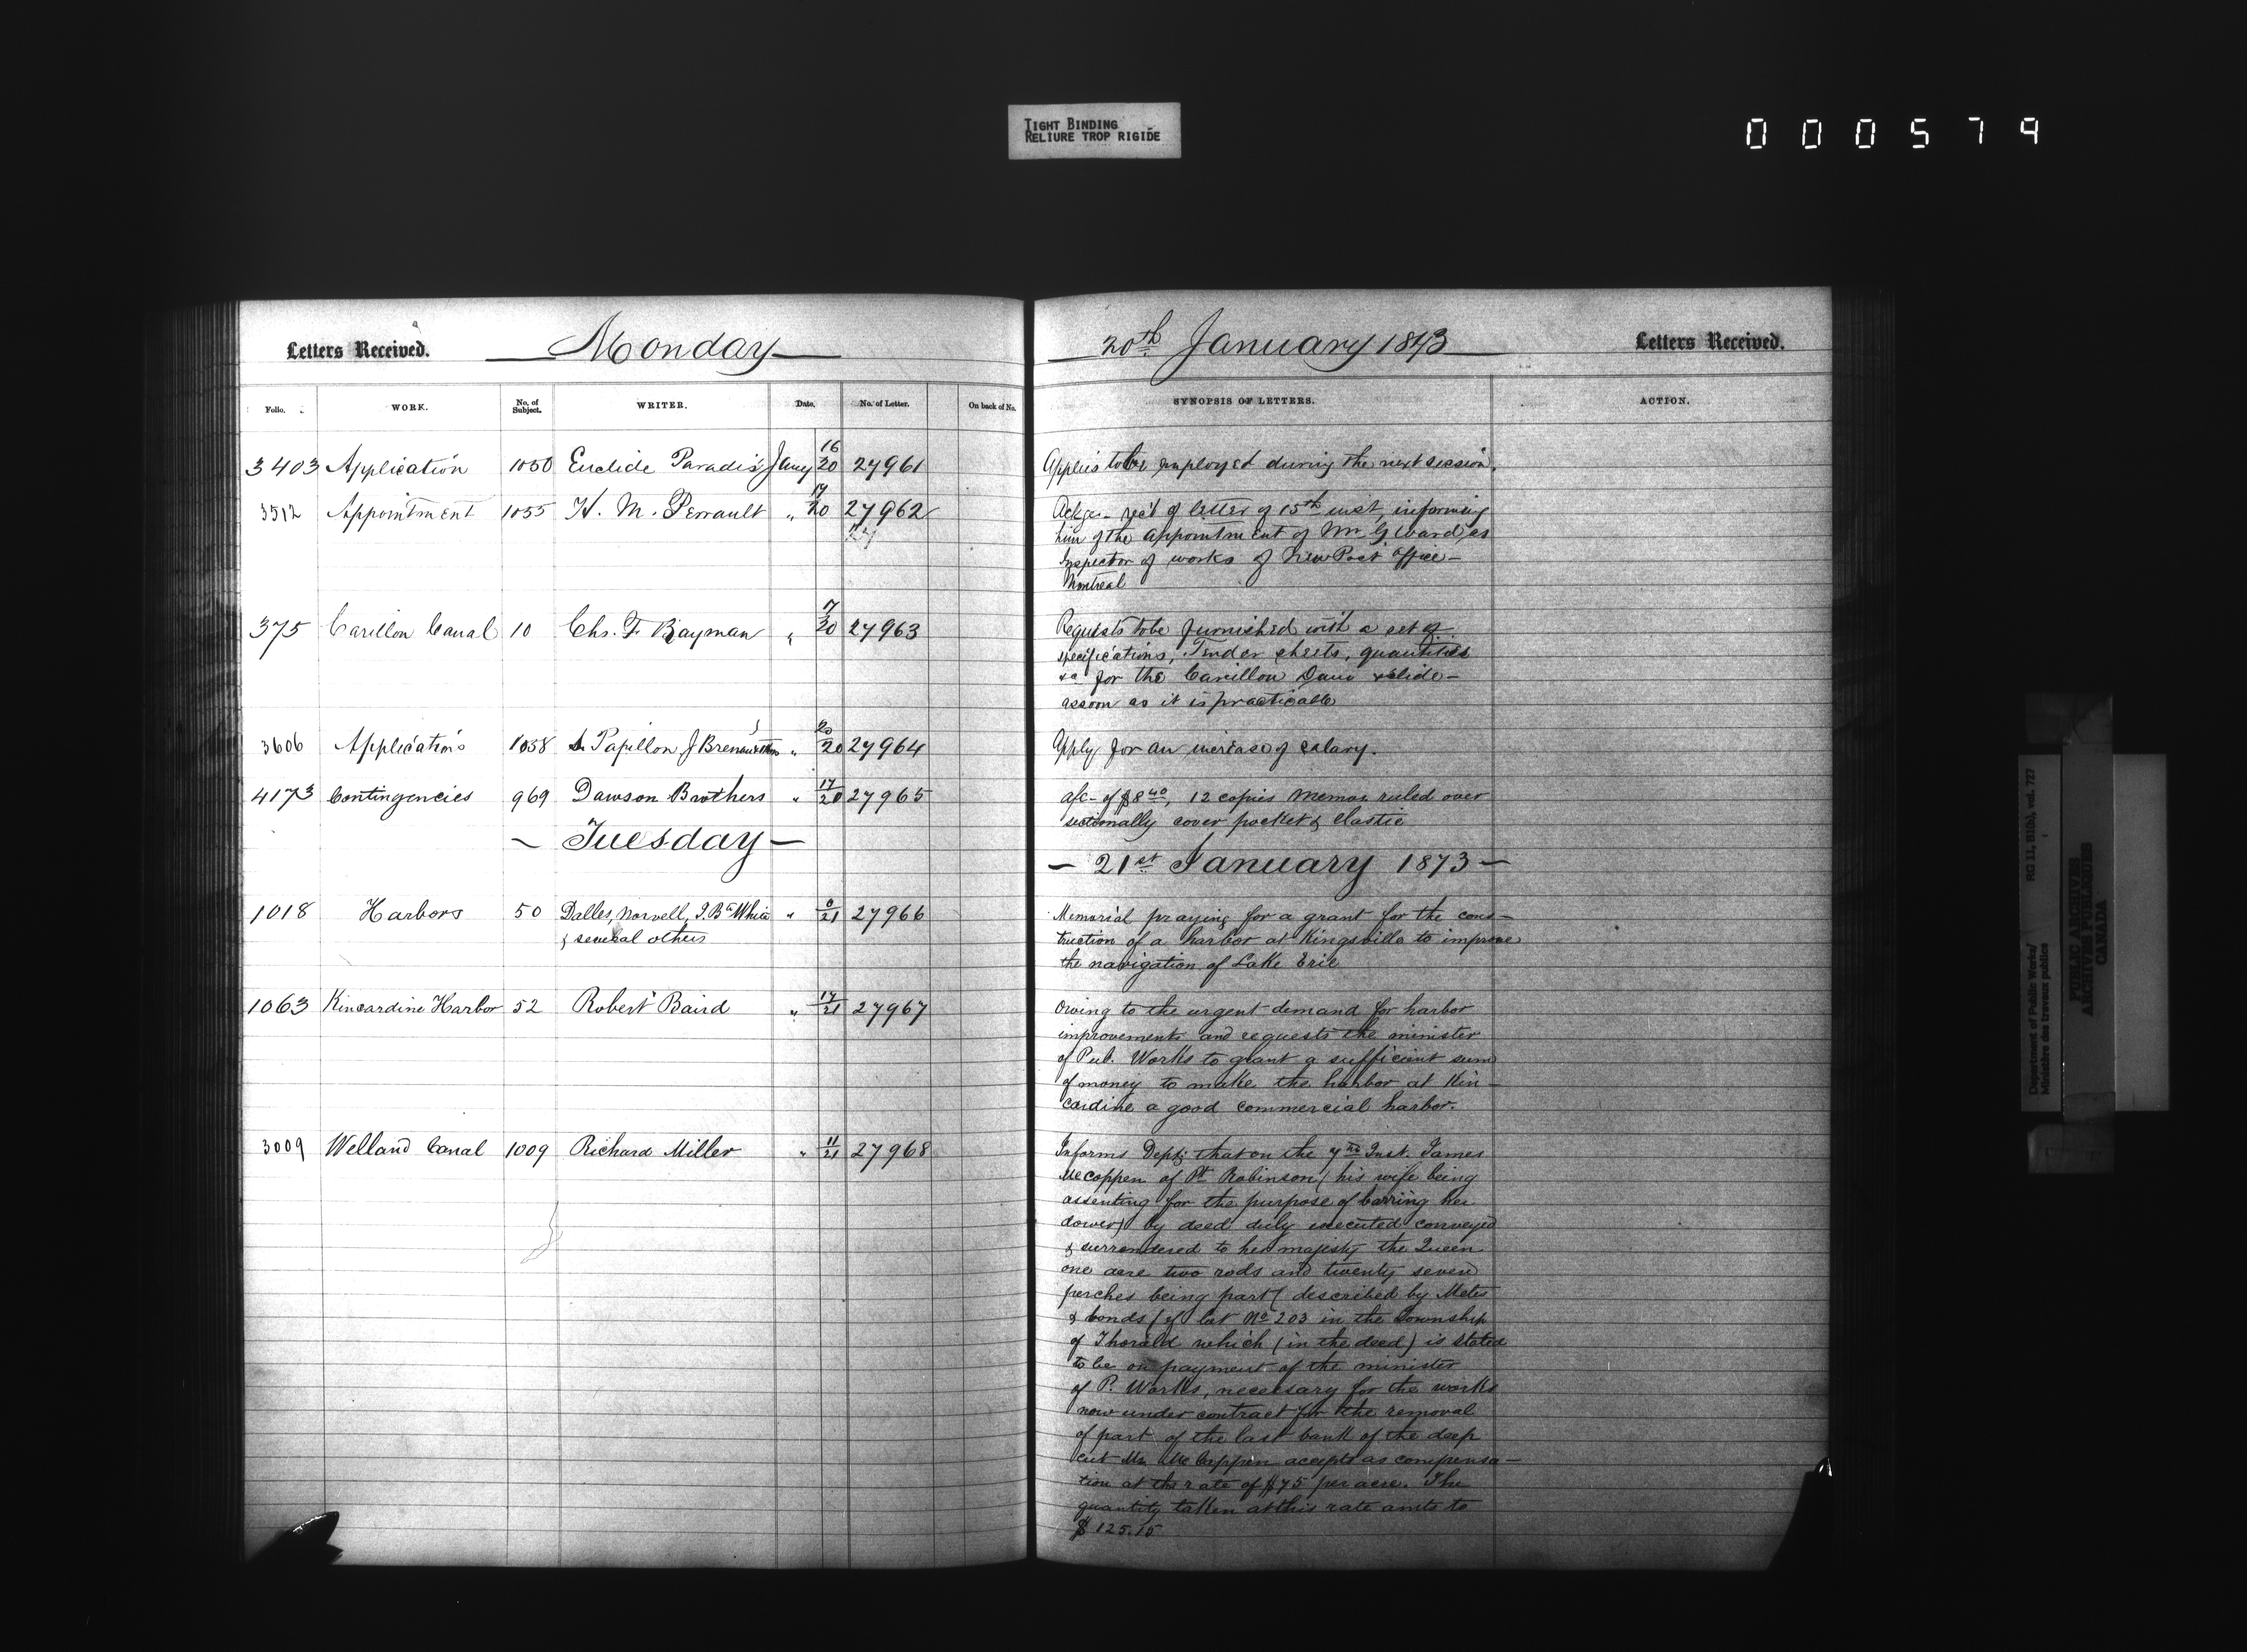 TIGHT BINDING
RELIURE TROP RIGIDE
000579
Letters Received.
Monday
20th January 1873
Letters Received.
Folio.
WORK.
No. of Subject.
WRITER.
Date.
No. of Letter.
On back of No.
SYNOPSIS OF LETTERS.
ACTION.
3403 Application 1050 Euclide Paradis Jany 16/20 27961
Applies to be employed during the next session.
3512 Appointment 1055 H. M. Perrault " 17/20 27962
Ackgs- rec't of letter of 15th inst, informing
him of the appointment of Mr G Ward, as
Inspector of works of New Post Office-
Montreal
375 Carillon Canal 10 Chs. F. Rayman " 7/20 27963
Requests to be furnished with a set of
specifications, Tender sheets, quantities
&c for the Carillon Dam & slide-
as soon as it is practicable
3606 Applications 1038 Papillon J 20/20 27964
Apply for an increase of salary.
4173 Contingencies 969 Dawson Brothers " 17/20 27965
a/c- of $8 40, 12 copies memos ruled over
sectionally cover pocket & elastic
- Tuesday -
- 21st January 1873 -
1018 Harbors 50 Dalles, Norvell, J. Bte White " 0/21 27966
& several others
Memorial praying for a grant for the cons-
truction of a harbor at Kingsville to improve
the navigation of Lake Erie
1063 Kincardine Harbor 52 Robert Baird " 17/21 27967
Owing to the urgent demand for harbor
improvements and requests the minister
of Pub. Works to grant a sufficient sum
of money to make the harbor at Kin-
cardine a good commercial harbor.
3009 Welland Canal 1009 Richard Miller " 11/21 27968
Informs Dept; that on the 7th Inst. James
McCoppen of Pt Robinson (his wife being
assenting for the purpose of barring her
dower) by deed duly executed conveyed
& surrendered to her majesty the Queen
one acre two rods and twenty seven
perches being part (described by Metes
& bonds) of lot No 203 in the Township
of Thorold which (in the deed) is stated
to be on payment of the minister
of P. Works, necessary for the works
now under contract for the removal
of part of the last bank of the deep
cut Mr McCoppen accepts as compensa-
tion at the rate of $75 per acre. The
quantity taken at this rate amts to
$125.15
Department of Public Works/ RG 11, B1(b), vol. 727
Ministère des travaux publics
PUBLIC ARCHIVES
ARCHIVES PUBLIQUES
CANADA